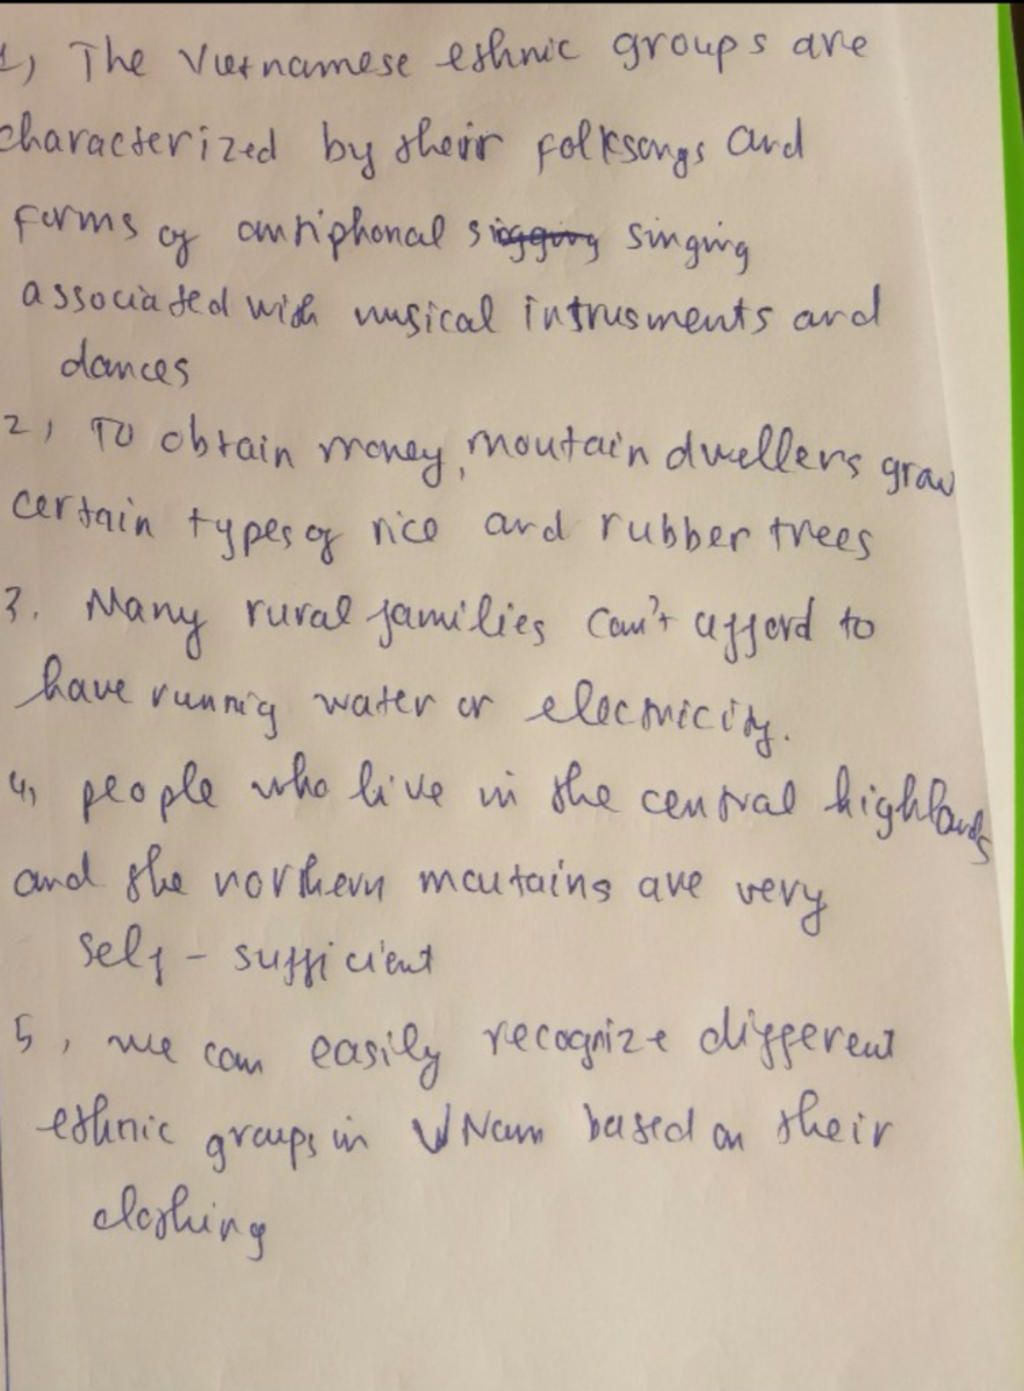 1, The Vietnamese ethnic groups are
characterized by their folksongs and
forms of antiphonal singing
associated with musical intrusments and
dances
2, To obtain money, moutain dwellers grow
certain types of rice and rubber trees
3. Many rural families can't afford to
have runnig water or electricity.
4, people who live in the central highlands
and the northern moutains are very
self - sufficient
5, we can easily recognize different
ethnic groups in VNam based on their
clothing